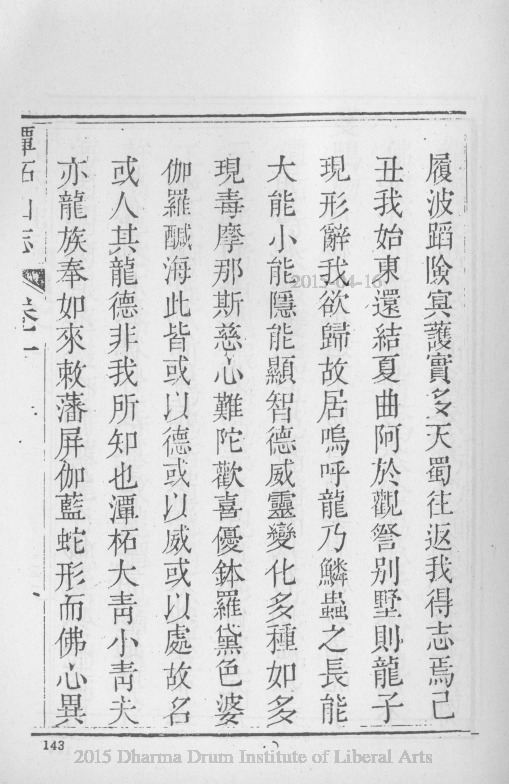 履波蹈險冥護實多天蜀往返我得志焉己
丑我始東還結夏曲阿於觀詧别墅則龍子
現形辭我欲歸故居嗚呼龍乃鱗蟲之長能
大能小能隱能顯智德威靈變化多種如多
現毒摩那斯慈心難陀歡喜優鉢羅黛色婆
伽羅醎海此皆或以德或以威或以處故名
或人其龍德非我所知也潭柘大靑小靑夫
亦龍族奉如來敕藩屏伽藍蛇形而佛心異
潭柘山志 卷一
143
2015-04-16
2015 Dharma Drum Institute of Liberal Arts